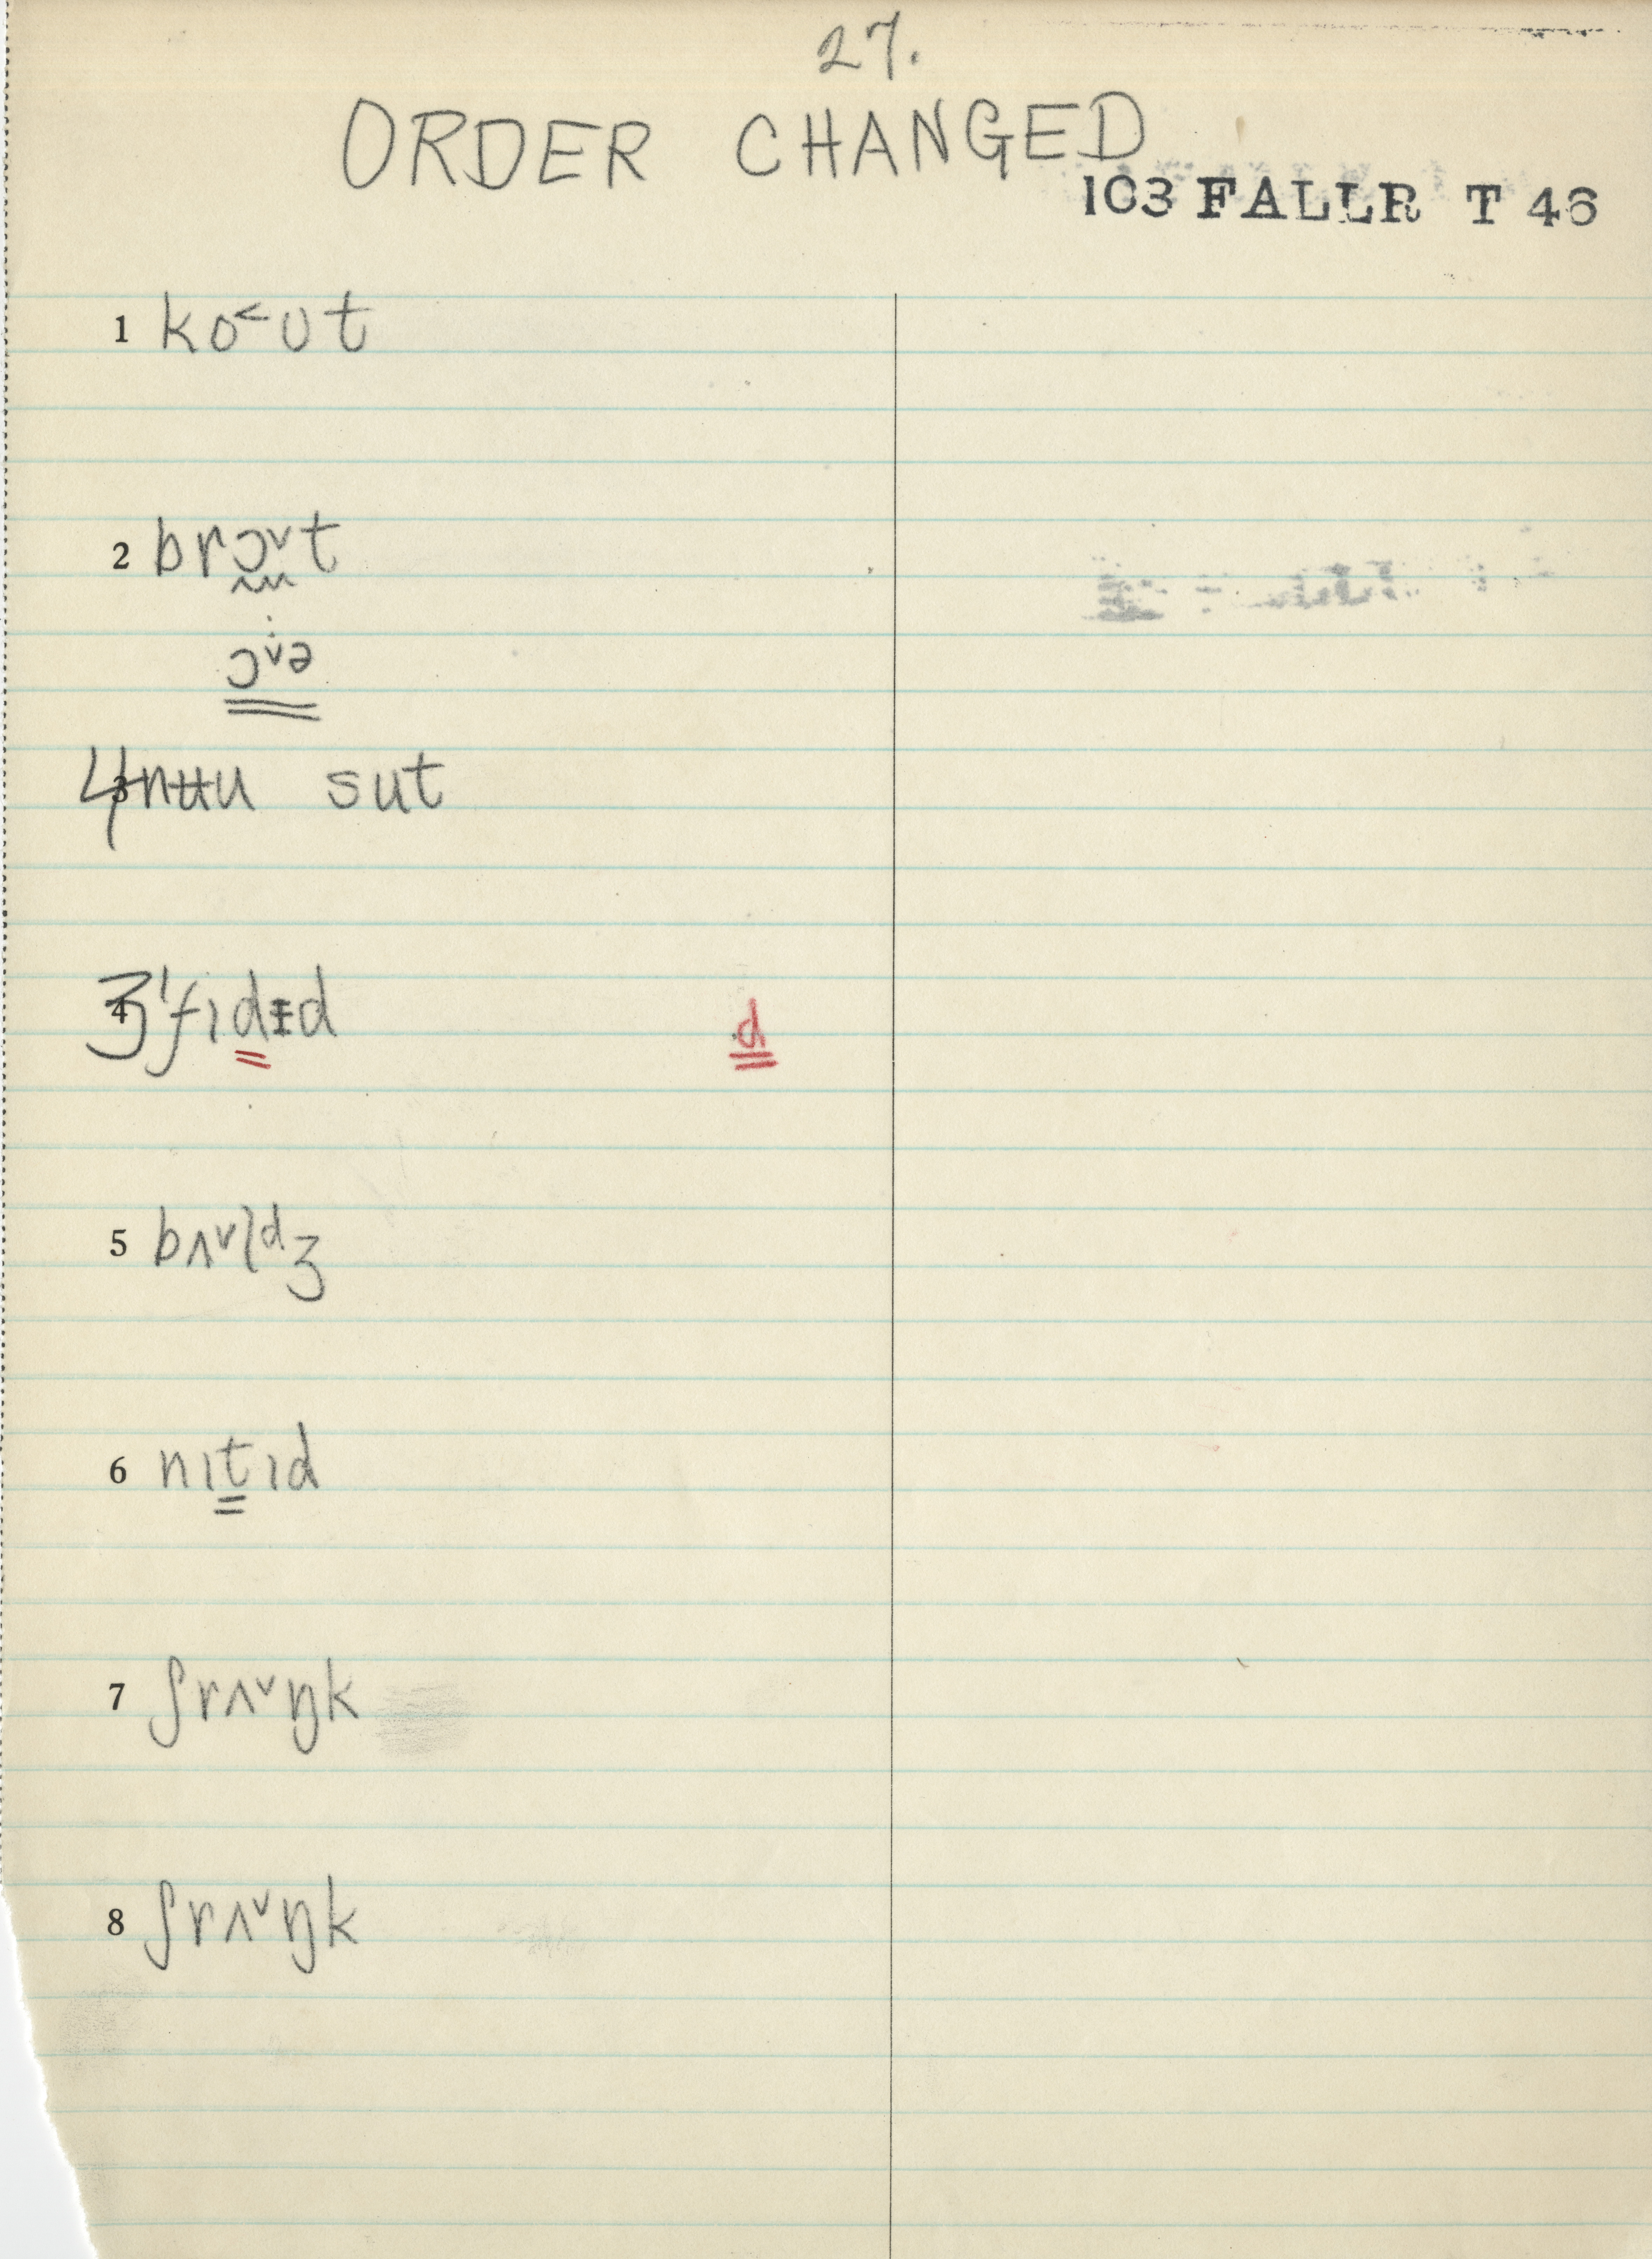 27.
ORDER CHANGED
103 FALLR T 46
1 ko˂ʊt
2 brɔ˅t
ɔ˅ə
4 nʉu sut
3 ˈfɪdɪd d
5 bʌ˅lᵈʒ
6 nɪtɪd
7 ʃrʌ˅ŋk
8 ʃrʌ˅ŋk